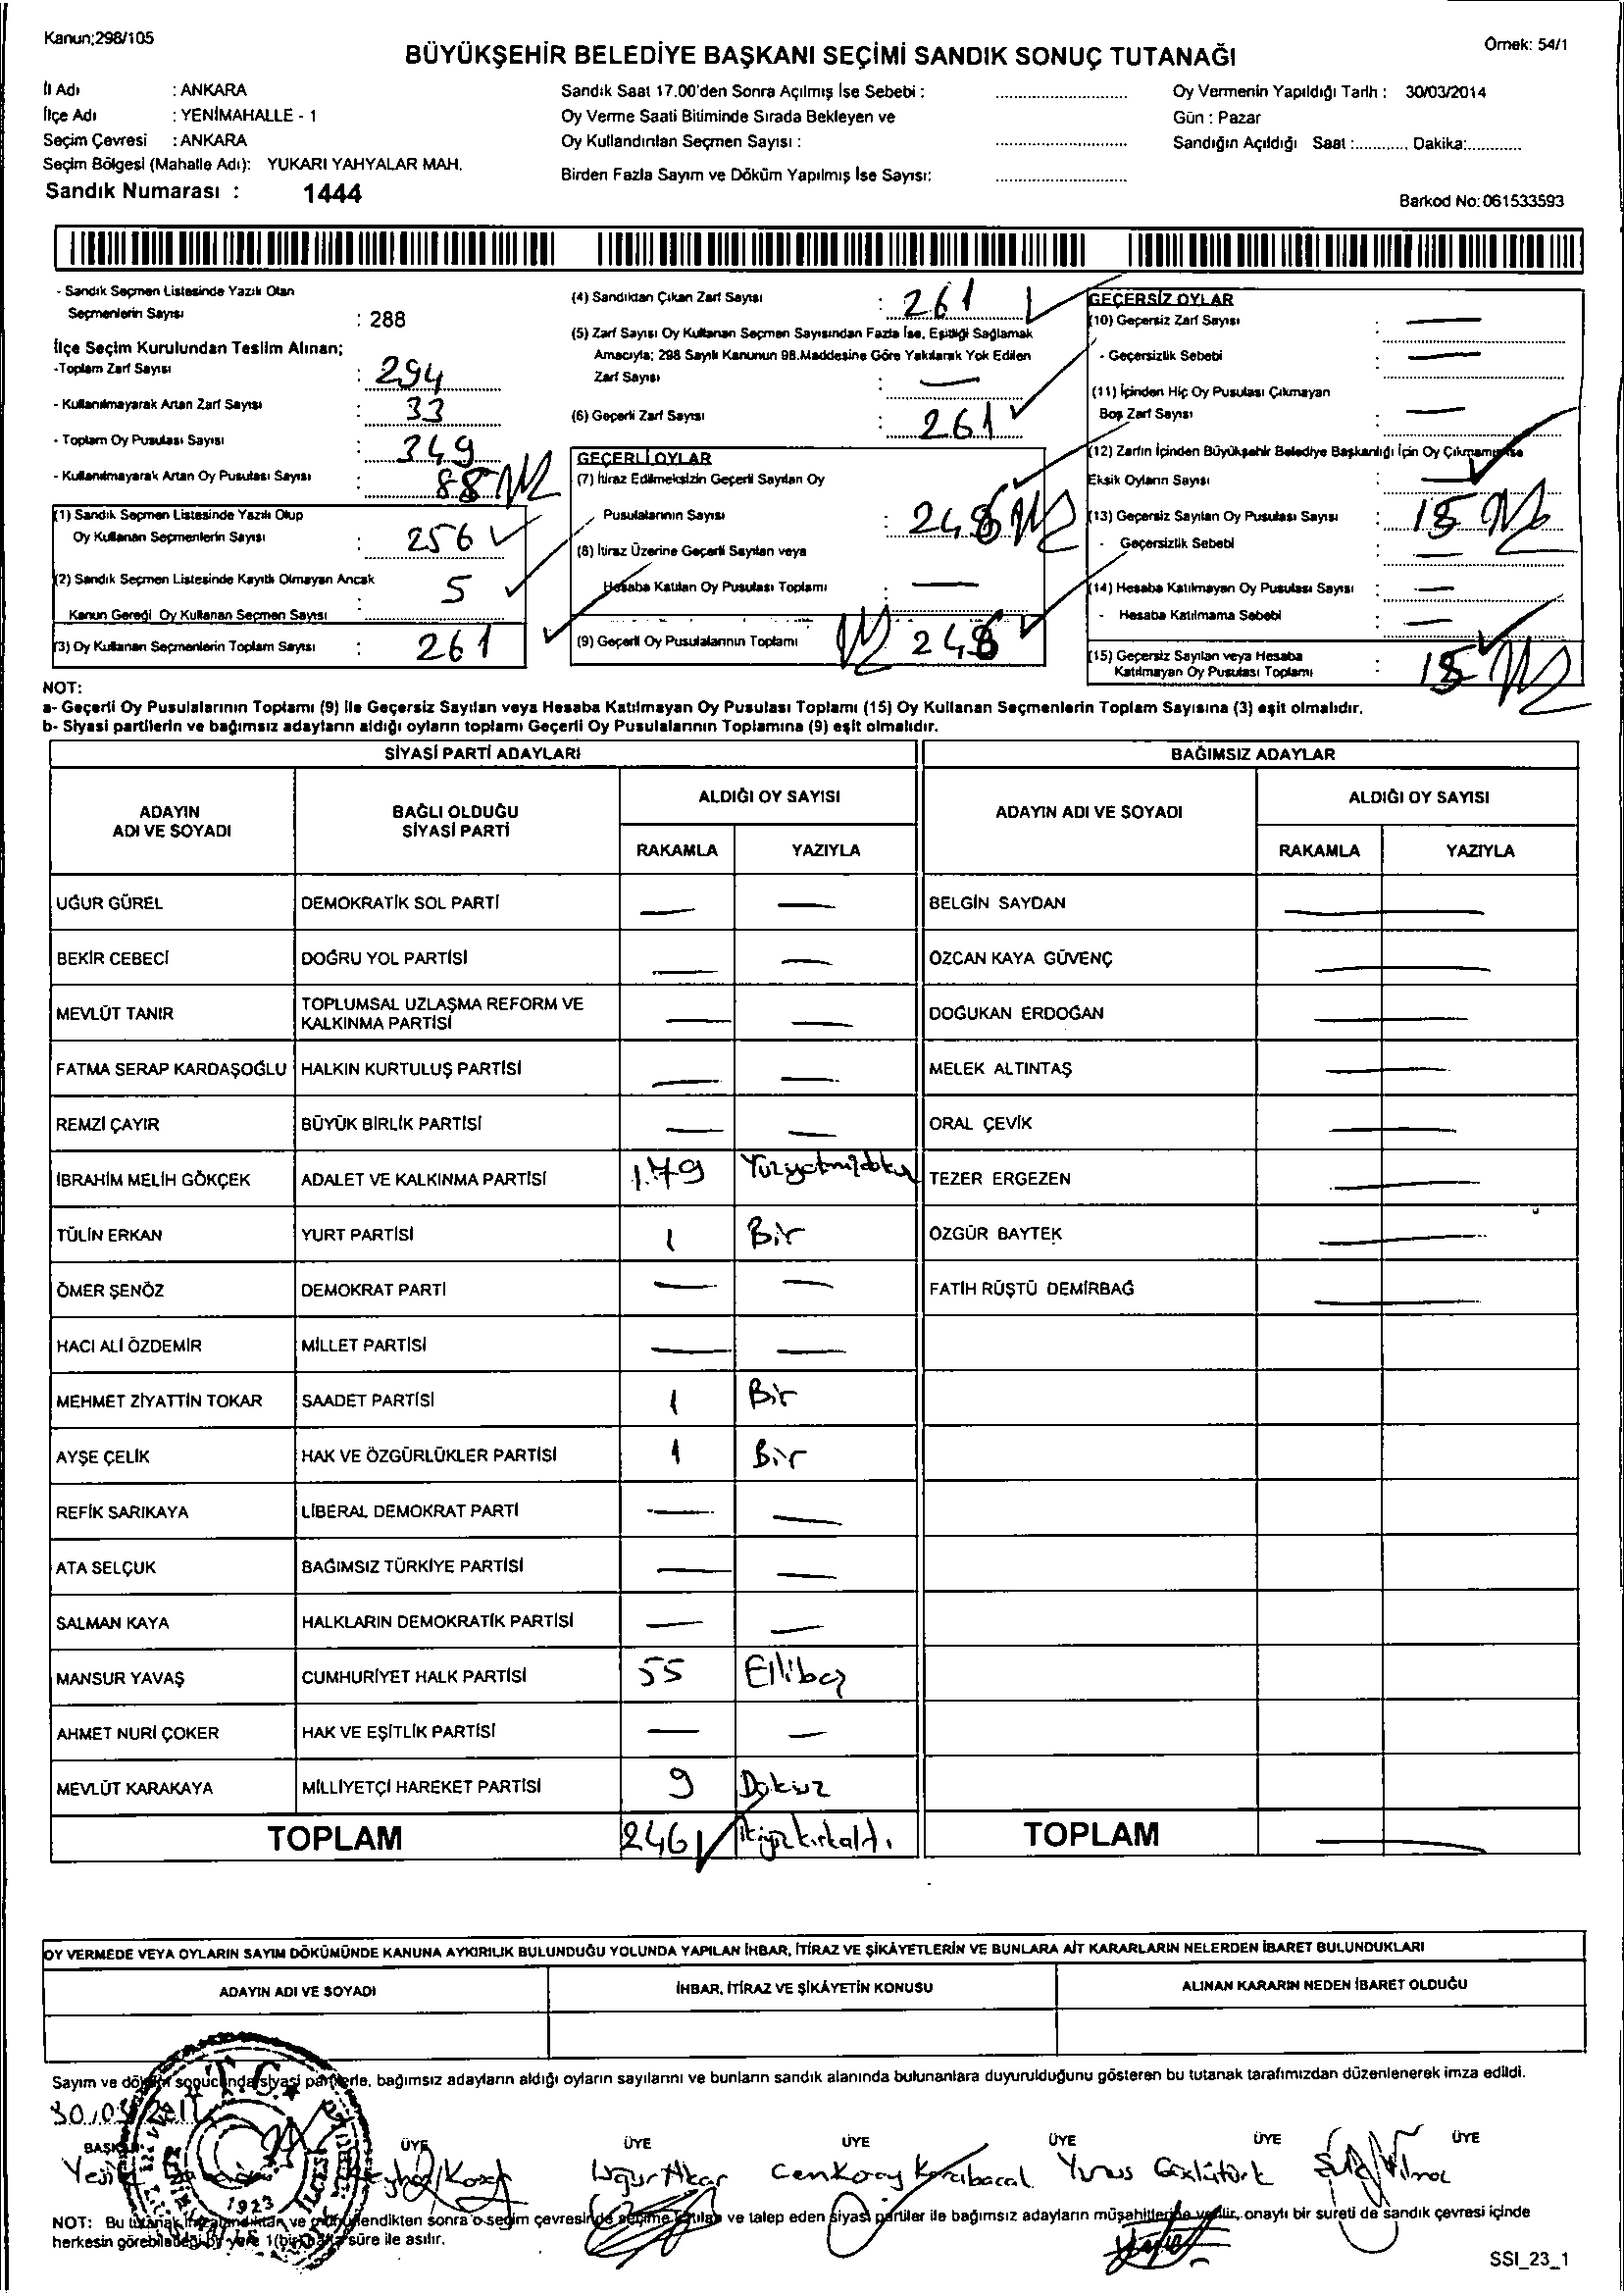 Kanun;298/105
Örnek: 54/1
BÜYÜKŞEHİR BELEDİYE BAŞKANI SEÇİMİ SANDIK SONUÇ TUTANAĞI
İl Adı : ANKARA
İlçe Adı : YENİMAHALLE - 1
Seçim Çevresi : ANKARA
Seçim Bölgesi (Mahalle Adı): YUKARI YAHYALAR MAH.
Sandık Numarası : 1444
Sandık Saat 17.00'den Sonra Açılmış İse Sebebi :
Oy Verme Saati Bitiminde Sırada Bekleyen ve
Oy Kullandırılan Seçmen Sayısı :
Birden Fazla Sayım ve Döküm Yapılmış İse Sayısı:
Oy Vermenin Yapıldığı Tarih : 30/03/2014
Gün : Pazar
Sandığın Açıldığı Saat :............ Dakika:............
Barkod No:061533593
- Sandık Seçmen Listesinde Yazılı Olan
Seçmenlerin Sayısı : 288
İlçe Seçim Kurulundan Teslim Alınan;
-Toplam Zarf Sayısı : 294
- Kullanılmayarak Artan Zarf Sayısı : 33
- Toplam Oy Pusulası Sayısı : 349
- Kullanılmayarak Artan Oy Pusulası Sayısı : 88
(1) Sandık Seçmen Listesinde Yazılı Olup
Oy Kullanan Seçmenlerin Sayısı : 256
(2) Sandık Seçmen Listesinde Kayıtlı Olmayan Ancak
Kanun Gereği Oy Kullanan Seçmen Sayısı : 5
(3) Oy Kullanan Seçmenlerin Toplam Sayısı : 261
(4) Sandıktan Çıkan Zarf Sayısı : 261
(5) Zarf Sayısı Oy Kullanan Seçmen Sayısından Fazla İse, Eşitliği Sağlamak
Amacıyla; 298 Sayılı Kanunun 98.Maddesine Göre Yakılarak Yok Edilen
Zarf Sayısı : —
(6) Geçerli Zarf Sayısı : 261
GEÇERLİ OYLAR
(7) İtiraz Edilmeksizin Geçerli Sayılan Oy
Pusulalarının Sayısı :
(8) İtiraz Üzerine Geçerli Sayılan veya
Hesaba Katılan Oy Pusulası Toplamı : —
(9) Geçerli Oy Pusulalarının Toplamı :
GEÇERSİZ OYLAR
(10) Geçersiz Zarf Sayısı : —
- Geçersizlik Sebebi : —
(11) İçinden Hiç Oy Pusulası Çıkmayan
Boş Zarf Sayısı : —
(12) Zarfın İçinden Büyükşehir Belediye Başkanlığı İçin Oy Çıkmamış ise
Eksik Oyların Sayısı : —
(13) Geçersiz Sayılan Oy Pusulası Sayısı :
- Geçersizlik Sebebi : —
(14) Hesaba Katılmayan Oy Pusulası Sayısı : —
- Hesaba Katılmama Sebebi : —
(15) Geçersiz Sayılan veya Hesaba
Katılmayan Oy Pusulası Toplamı :
NOT:
a- Geçerli Oy Pusulalarının Toplamı (9) İle Geçersiz Sayılan veya Hesaba Katılmayan Oy Pusulası Toplamı (15) Oy Kullanan Seçmenlerin Toplam Sayısına (3) eşit olmalıdır.
b- Siyasi partilerin ve bağımsız adayların aldığı oyların toplamı Geçerli Oy Pusulalarının Toplamına (9) eşit olmalıdır.
SİYASİ PARTİ ADAYLARI BAĞIMSIZ ADAYLAR
ADAYIN ADI VE SOYADI BAĞLI OLDUĞU SİYASİ PARTİ ALDIĞI OY SAYISI ADAYIN ADI VE SOYADI ALDIĞI OY SAYISI
RAKAMLA YAZIYLA RAKAMLA YAZIYLA
UĞUR GÜREL DEMOKRATİK SOL PARTİ — — BELGİN SAYDAN —
BEKİR CEBECİ DOĞRU YOL PARTİSİ — — ÖZCAN KAYA GÜVENÇ —
MEVLÜT TANIR TOPLUMSAL UZLAŞMA REFORM VE KALKINMA PARTİSİ — — DOĞUKAN ERDOĞAN —
FATMA SERAP KARDAŞOĞLU HALKIN KURTULUŞ PARTİSİ — — MELEK ALTINTAŞ —
REMZİ ÇAYIR BÜYÜK BİRLİK PARTİSİ — — ORAL ÇEVİK —
İBRAHİM MELİH GÖKÇEK ADALET VE KALKINMA PARTİSİ 179 Yüzyetmişdoku TEZER ERGEZEN —
TÜLİN ERKAN YURT PARTİSİ 1 Bir ÖZGÜR BAYTEK —
ÖMER ŞENÖZ DEMOKRAT PARTİ — — FATİH RÜŞTÜ DEMİRBAĞ —
HACI ALİ ÖZDEMİR MİLLET PARTİSİ — —
MEHMET ZİYATTİN TOKAR SAADET PARTİSİ 1 Bir
AYŞE ÇELİK HAK VE ÖZGÜRLÜKLER PARTİSİ 1 Bir
REFİK SARIKAYA LİBERAL DEMOKRAT PARTİ — —
ATA SELÇUK BAĞIMSIZ TÜRKİYE PARTİSİ — —
SALMAN KAYA HALKLARIN DEMOKRATİK PARTİSİ — —
MANSUR YAVAŞ CUMHURİYET HALK PARTİSİ 55 Ellibeş
AHMET NURİ ÇOKER HAK VE EŞİTLİK PARTİSİ — —
MEVLÜT KARAKAYA MİLLİYETÇİ HAREKET PARTİSİ 9 Dokuz
TOPLAM 246 ikiyüzkırkaltı TOPLAM —
OY VERMEDE VEYA OYLARIN SAYIM DÖKÜMÜNDE KANUNA AYKIRILIK BULUNDUĞU YOLUNDA YAPILAN İHBAR, İTİRAZ VE ŞİKÂYETLERİN VE BUNLARA AİT KARARLARIN NELERDEN İBARET BULUNDUKLARI
ADAYIN ADI VE SOYADI İHBAR, İTİRAZ VE ŞİKÂYETİN KONUSU ALINAN KARARIN NEDEN İBARET OLDUĞU
Sayım ve döküm sonucunda siyasi partilerle, bağımsız adayların aldığı oyların sayılarını ve bunların sandık alanında bulunanlara duyurulduğunu gösteren bu tutanak tarafımızdan düzenlenerek imza edildi.
T.C.
BAŞKAN ÜYE ÜYE ÜYE ÜYE ÜYE ÜYE
Uğur Akar Cenkoray Karabacal Yunus
1923
NOT: Bu tutanak ve sonra o seçim çevresinde seçime katılan ve talep eden siyasi partiler ile bağımsız adayların müşahitlerine verilir, onaylı bir sureti de sandık çevresi içinde
herkesin görebileceği bir yere 1(bir) hafta süre ile asılır.
SSI_23_1